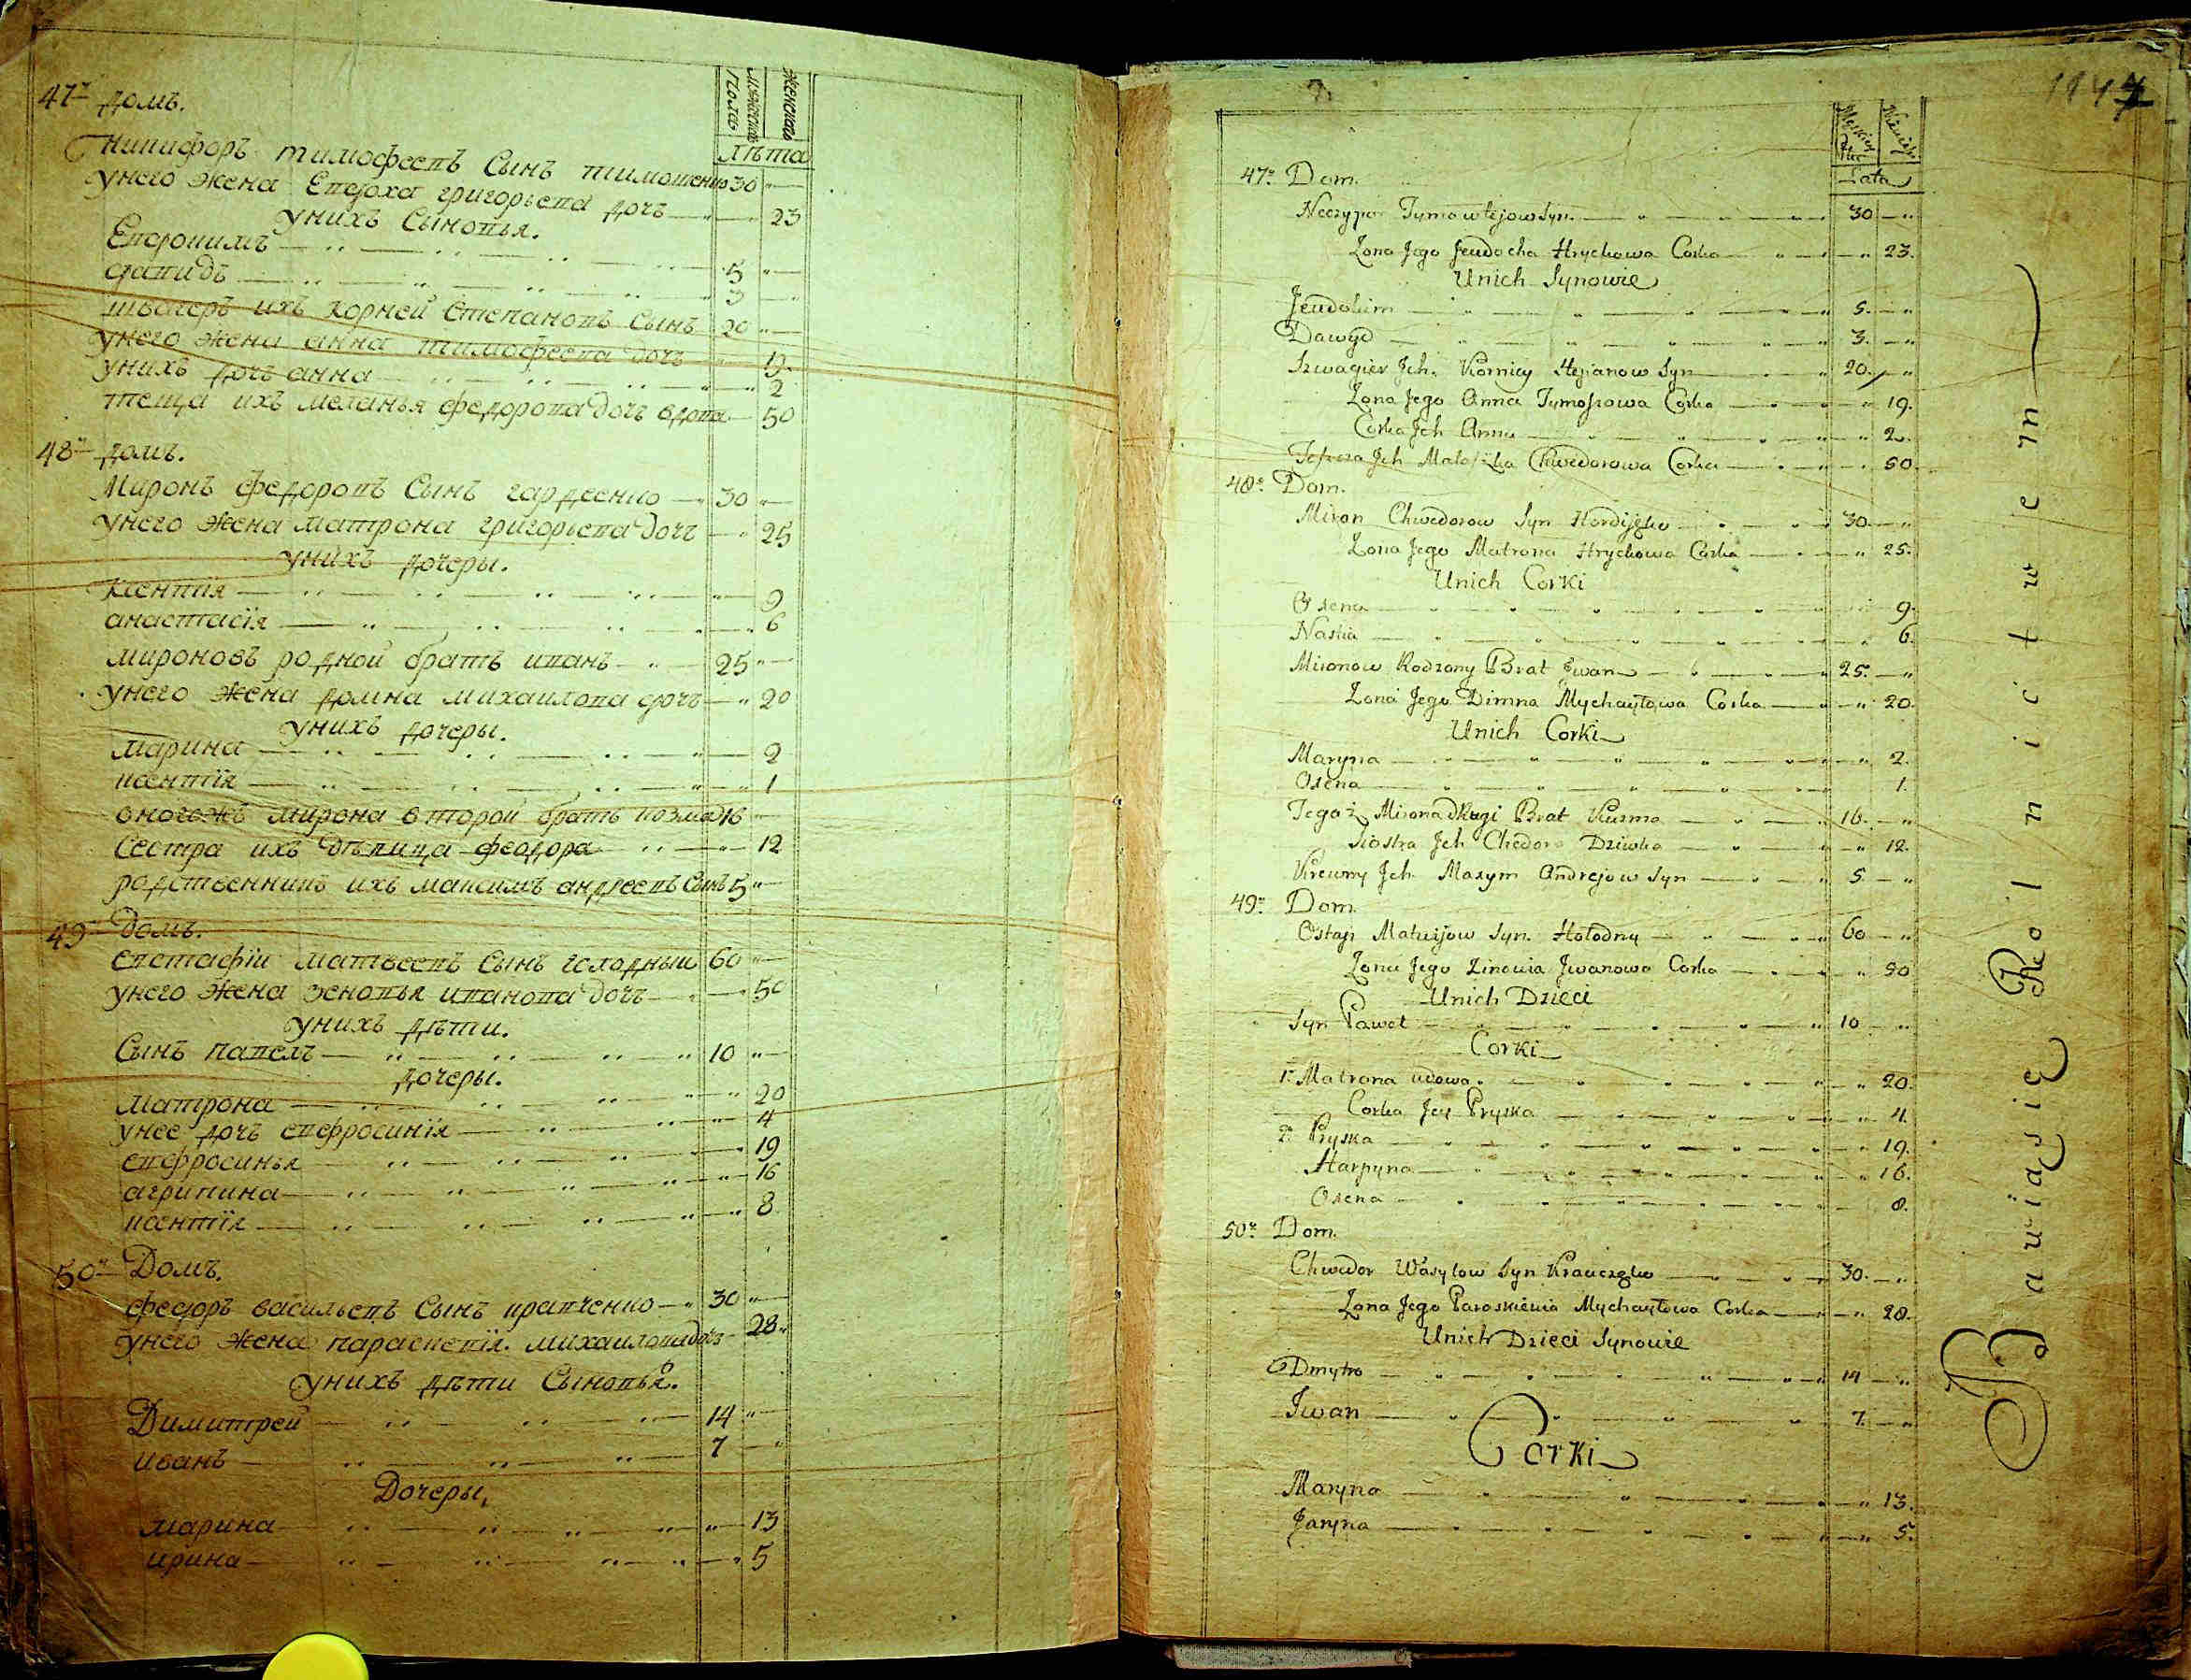 47й домъ.
мужеска пола
женска
лѣта
никифоръ тимофеевъ Сынъ тимошенко 30
унего жена Евдоха григорьева дочь 23
унихъ Сыновья.
Евдокимъ 5
давидъ 3
швагеръ ихъ корней Степановъ Сынъ 20
унего жена анна тимофеева дочь 19
унихъ дочь анна 2
теща ихъ меланья федорова дочь вдова 50
48й домъ.
Миронъ федоровъ Сынъ гардеенко 30
унего жена матрона григорьева дочь 25
унихъ дочеры.
Ксентия 9
анастасія 6
мироновъ родной братъ иванъ 25
унего жена домна михаилова дочь 20
унихъ дочеры.
марина 2
ксентія 1
оногожъ мирона второй братъ козма 16
Сестра ихъ дѣвица феодора 12
родственникъ ихъ максимъ андреевъ Сынъ 5
49й домъ.
евстафіи матвеевъ Сынъ голодныи 60
унего жена зеновья иванова дочь 50
унихъ дѣти.
Сынъ павелъ 10
дочеры.
матрона 20
унее дочь евфросинія 4
евфросинья 19
агрипина 16
ксентія 8
50й Домъ.
федоръ васильевъ Сынъ кравченко 30
унего жена параскевія михаилова дочь 28
унихъ дѣти Сыновья.
Димитрей 14
иванъ 7
Дочеры,
марина 13
ирина 5
47. Dom.
Lata
Neczypor Tymowiejow Syn 30
Zona Jego Jeudocha Hrychowa Corka 23.
Unich Synowie
Jeudokim 5.
Dawyd 3.
Szwagier Jch. Korniey Stepanow Syn 20.
Zona Jego Anna Tymoszowa Corka 19.
Corka Jch Anna 2.
Teszcza Jch Chwedorowa Corka 50.
48. Dom.
Miron Chwedorow Syn Hordijeko 30.
Zona Jego Matrona Hrychowa Corka 25.
Unich Corki
Oxena 9.
Nastia 6.
Mironow Rodzony Brat Jwan 25.
Zona Jego Dimna Mychayłowa Corka 20.
Unich Corki
Maryna 2.
Oxena 1.
Tegoż Mirona drugi Brat Kuzma 16.
Siostra Jch Chedora Dziwka 12.
Krewny Jch Maxym Andrejow Syn 5.
49. Dom.
Ostap Matwijow Syn. Hołodny 60
Zona Jego Zinowia Jwanowa Corka 50
Unich Dzieci
Syn Paweł 10
Corki
1. Matrona udowa. 20.
Corka Jey Pryska 4.
2. Pryska 19.
Harpyna 16.
Oxena 8.
50. Dom.
Chwedor Wasylow Syn Krauczeko 30.
Zona Jego Paroskiewia Mychayłowa Corka 28.
Unich Dzieci Synowie
Dmytro 14
Jwan 7.
Corki
Maryna 13.
Jaryna 5.
Bawią się Rolnictwem